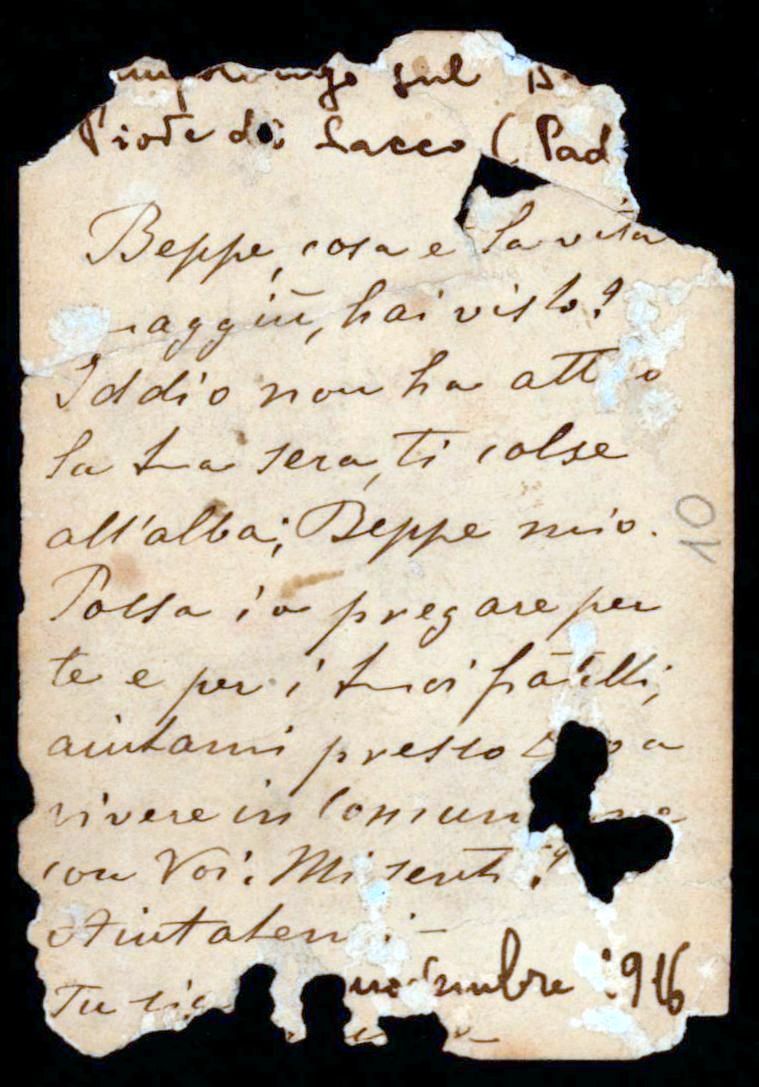 sul
Piove di Sacco (Pad
Beppe, cosa è la vita
quaggiù, hai visto?
Iddio non ha atteso
la tua sera, ti colse
all'alba; Beppe mio.
Possa io pregare per
te e per i tuoi fratelli;
aiutami presso a
vivere in
con Voi. Mi senti?
Aiutatemi -
Tu
novembre 1916
10